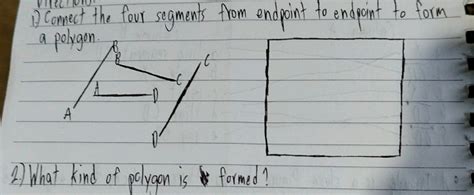 1) Connect the four segments from endpoint to endpoint to form
a polygon.
B
B
C
C
A
A
D
D
2) What kind of polygon is formed?